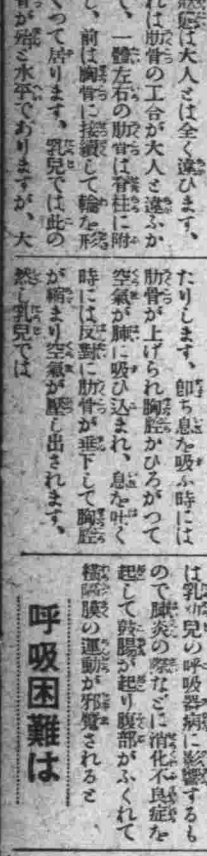 態は大人とは全く違ひます、
れは肋骨の工合が大人と違ふか
で、一體左右の肋骨は脊柱に附
し、前は胸骨に接續して輪を形
くつて居ります、乳兒では此の
骨が殆ど水平でありますが、大
たりします、卽ち息を吸ふ時には
肋骨が上げられ胸腔がひろがつて
空氣が肺に吸ひ込まれ、息を吐く
時には反對に肋骨が垂下して胸腔
が縮まり空氣が壓し出されます、
然し乳兒では
は乳幼兒の呼吸器病に影響するも
ので肺炎の際などに消化不良症を
起して鼓腸が起り腹部がふくれて
橫隔膜の運動が邪魔されると
呼吸困難は